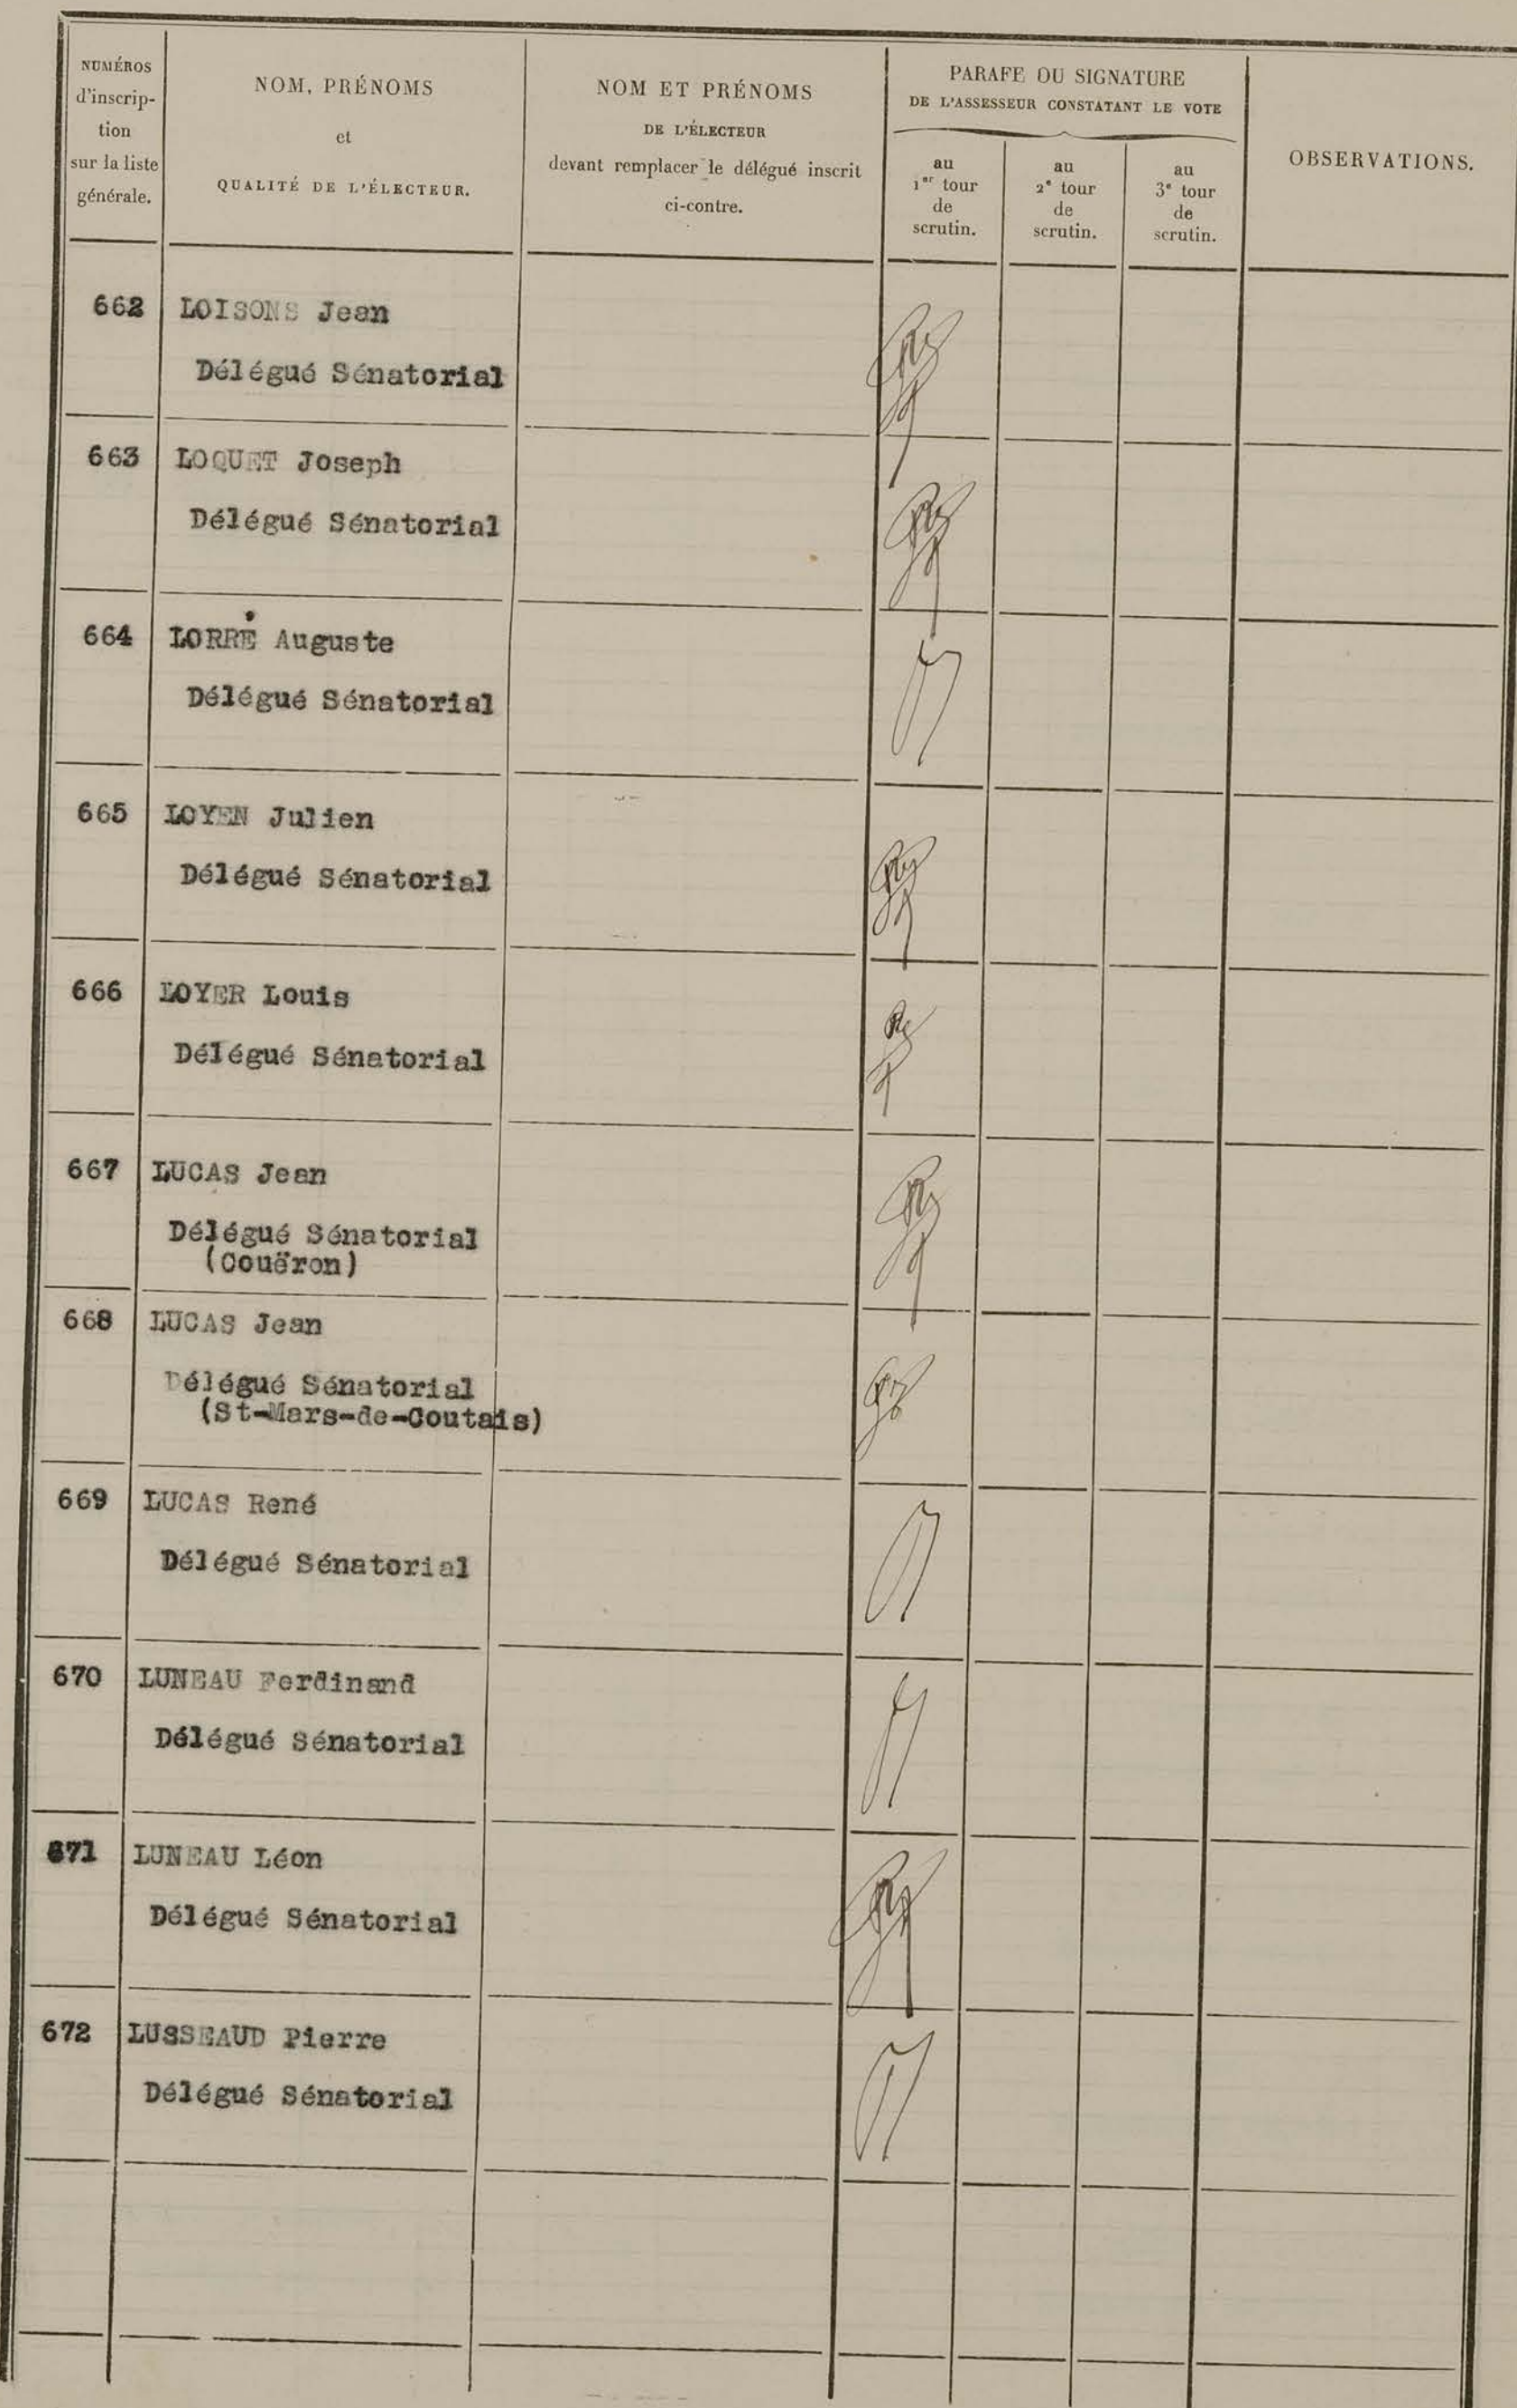 NUMÉROS
d'inscrip-
tion
sur la liste
générale.
NOM, PRÉNOMS
et
QUALITÉ DE L'ÉLECTEUR.
NOM ET PRÉNOMS
DE L'ÉLECTEUR
devant remplacer le délégué inscrit
ci-contre.
PARAFE OU SIGNATURE
DE L'ASSESSEUR CONSTATANT LE VOTE
au
1er tour
de
scrutin.
au
2e tour
de
scrutin.
au
3e tour
de
scrutin.
OBSERVATIONS.
662 LOISONS Jean
Délégué Sénatorial
663 LOQUET Joseph
Délégué Sénatorial
664 LORRÉ Auguste
Délégué Sénatorial
665 LOYEN Julien
Délégué Sénatorial
666 LOYER Louis
Délégué Sénatorial
667 LUCAS Jean
Délégué Sénatorial
(Couëron)
668 LUCAS Jean
Délégué Sénatorial
(St-Mars-de-Coutais)
669 LUCAS René
Délégué Sénatorial
670 LUNEAU Ferdinand
Délégué Sénatorial
671 LUNEAU Léon
Délégué Sénatorial
672 LUSSEAUD Pierre
Délégué Sénatorial